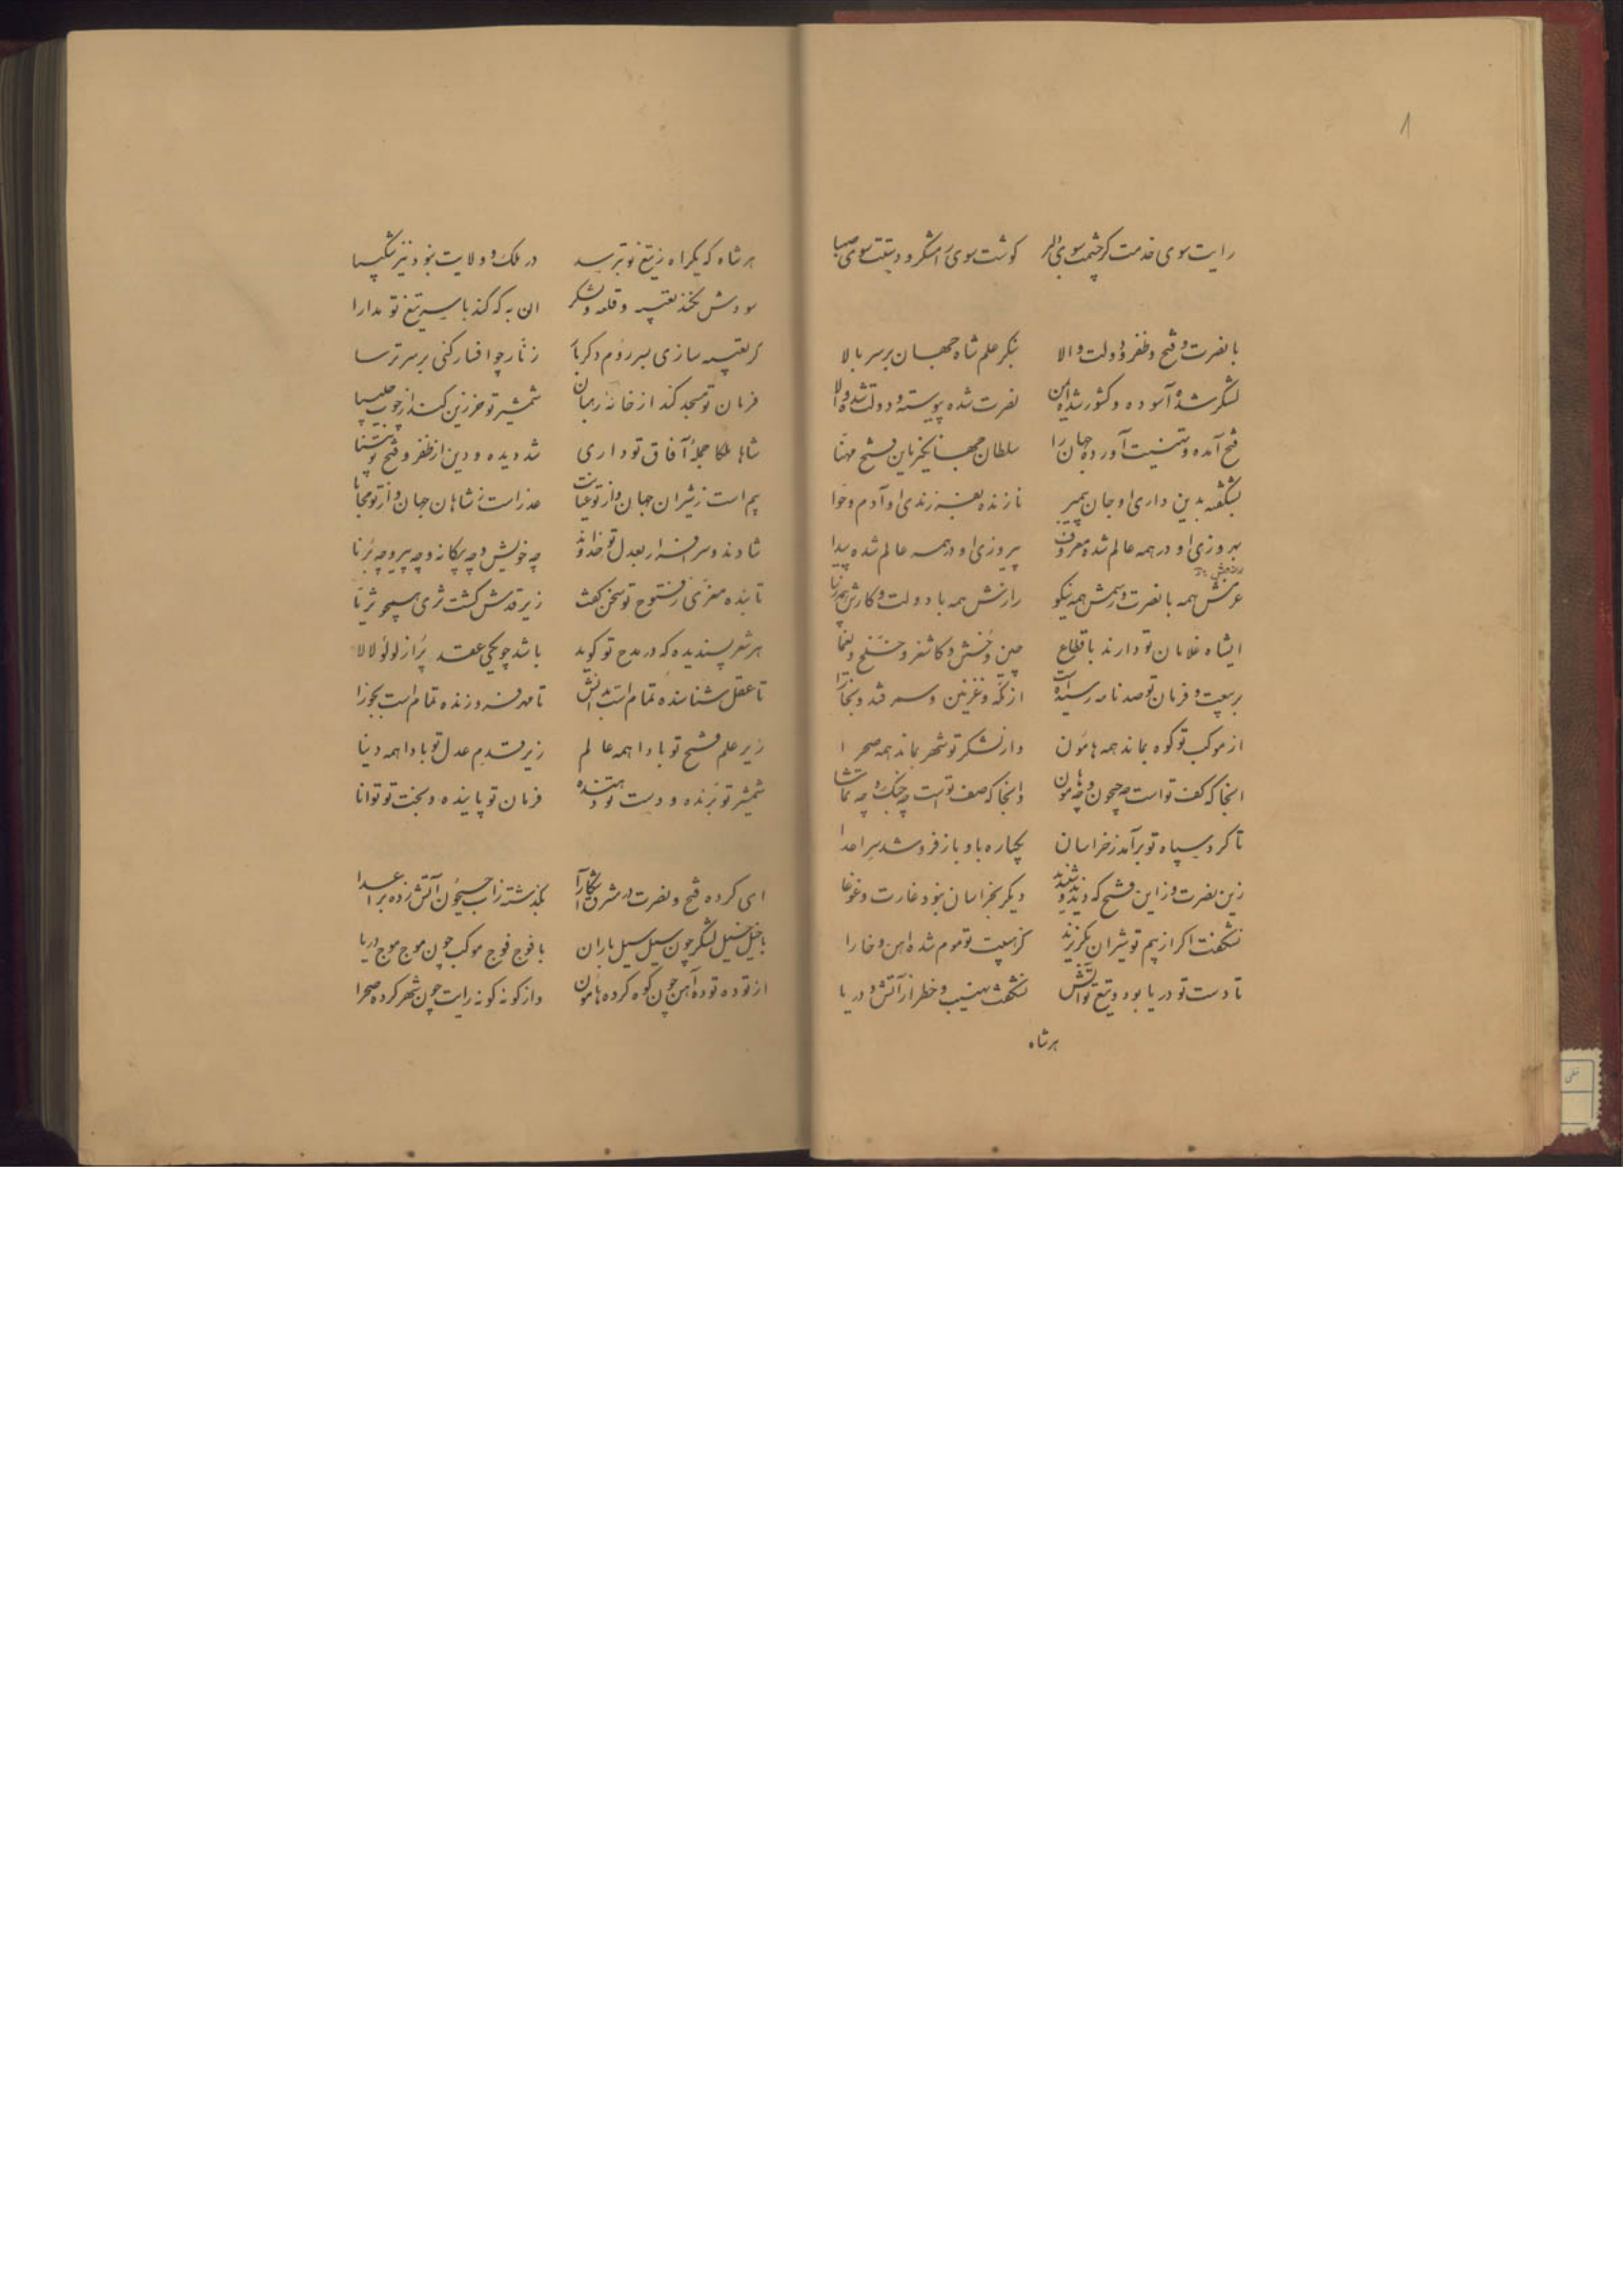 ۸
رایت سوی خدمت کر چشمت سوی دلبر کوشت سوی رامشکر و دستت سوی صهبا
با نصرت و فتح و ظفر و دولت والا بنکر علم شاه جهان بر سر بالا
لشکر شده آسوده و کشور شده ایمن نصرت شده پیوسته و دولت شده والا
فتح آمده و تهنیت آورده جهان را سلطان جهانکیر باین فتح مهنا
بشکفته بدین داری او جان پیمبر نازنده بفرزندی او آدم و حوا
بهروزی او در همه عالم شده معروف پیروزی او در همه عالم شده پیدا
عزمش همه با نصرت و رسمش همه نیکو رازش همه با دولت و کارش همه زیبا
ایشاه غلامان تو دارند باقطاع چین و ختن و کاشغر و خلخ و یغما
بر بیعت و فرمان تو صد نامه رسیده است از مکه و غزنین و سمرقند و بخارا
از موکب تو کوه بماند همه هامون واز لشکر تو شهر بماند همه صحرا
انجا که کف تو است چه جیحون و چه هامون وانجا که صف تو است چه جنک و چه تماشا
تا کرد سپاه تو برآمد ز خراسان یکباره باو باز فرو شد سر اعدا
زین نصرت و زاین فتح که دیدند و شنیدند دیکر بخراسان نبود غارت و غوغا
نشکفت اکر از بیم تو شیران بکریزند کز هیبت تو موم شده اهن و خارا
تا دست تو دریا بود و تیغ تو آتش نشکفت نهیب و خطر از آتش و دریا
هر شاه
هر شاه که یکراه ز تیغ تو بترسد در ملک و ولایت نبود نیز شکیبا
سودش نکند تعبیه و قلعه و لشکر ان به که کند با سر تیغ تو مدارا
کر تعبیه سازی بسر روم دکر بار زنار چو افسار کنی بر سر ترسا
فرمان تو مسجد کند از خانه رهبان شمشیر تو خرزین کند از چوب چلیپا
شاها ملکا جملهٔ آفاق تو داری شد دیده و دین از ظفر و فتح تو بینا
بیم است ز شیران جهان واز تو عنایت عذر است ز شاهان جهان واز تو محابا
شادند و سرافراز بعدل تو خداوند چه خویش و چه بیکانه و چه پیر و چه برنا
تا بنده معزی ز فتوح تو سخن کفت زیر قدمش کشت ثری همچو ثریا
هر شعر پسندیده که در مدح تو کوید باشد چو یکی عقد پر از لولو لالا
تا عقل شناسنده تمام است بدانش تا مه فروزنده تمام است بجوزا
زیر علم فتح تو بادا همه عالم زیر قدم عدل تو بادا همه دنیا
شمشیر تو برنده و دست تو دهنده فرمان تو پاینده و بخت تو توانا
ای کرده فتح و نصرت در مشرق آشکارا بکذشته زاب جیحون آتش زده بر اعدا
با خیل خیل لشکر چون سیل سیل باران با فوج فوج موکب چون موج موج دریا
از توده تودهٔ آهن چون کوه کرده هامون واز کونه کونه رایت چون شهر کرده صحرا